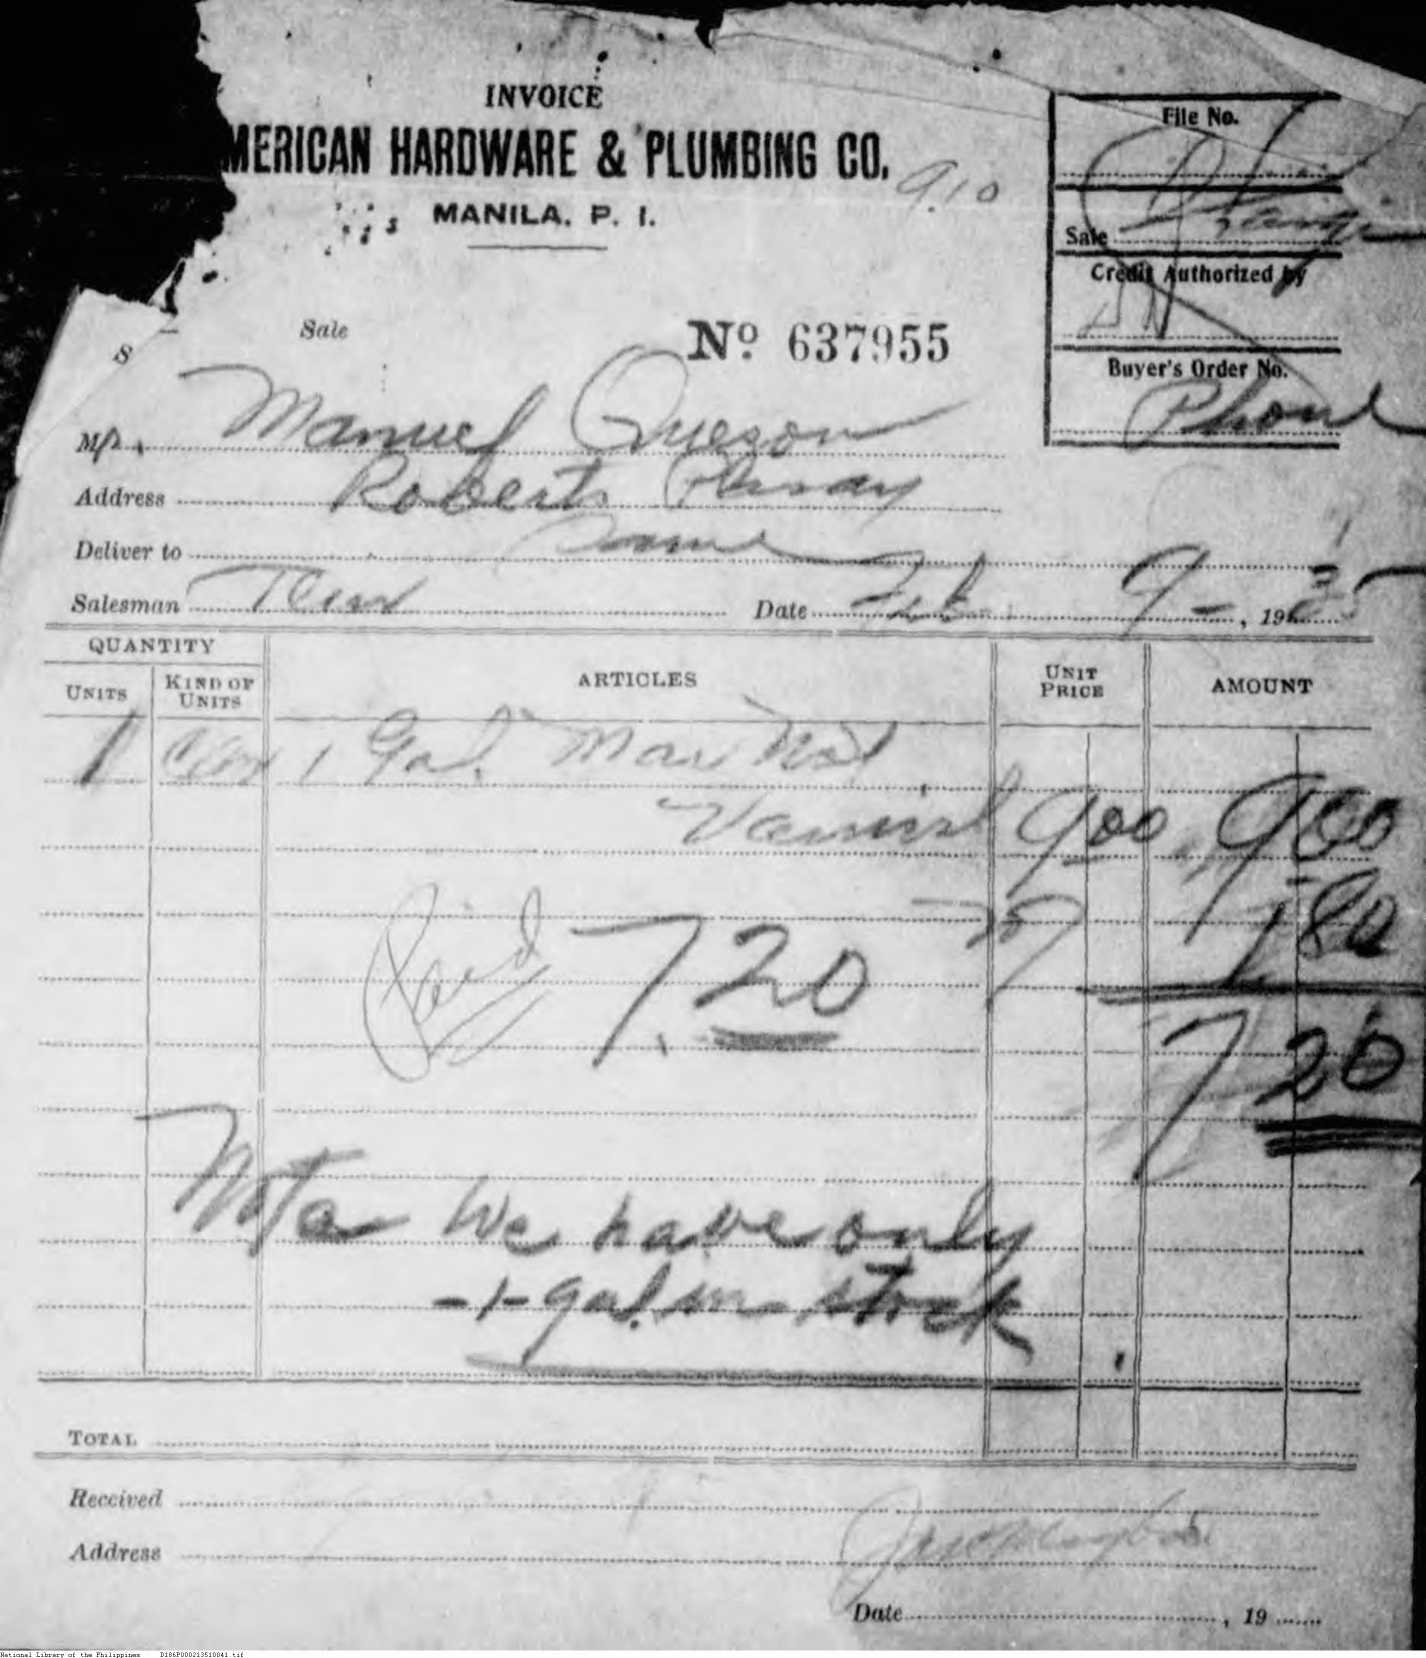 INVOICE
MERICAN HARDWARE & PLUMBING CO.
9.10
MANILA, P. I.
File No.
Sale
Credit Authorized by
Buyer's Order No.
Phone
Sale
No 637955
S
Mr. Manuel Quezon
Address Roberts Pasay
Deliver to Same
Salesman
Date Feb. 9 -, 19
QUANTITY
UNITS KIND OF UNITS ARTICLES UNIT PRICE AMOUNT
1 1 Gal. Mar Not
Varnish 900 9 00
1 80
Paid 7.20
7 20
Note We have only
-1- gal. in stock
TOTAL
Received
Address
Date , 19
National Library of the Philippines D186P000213510041.tif